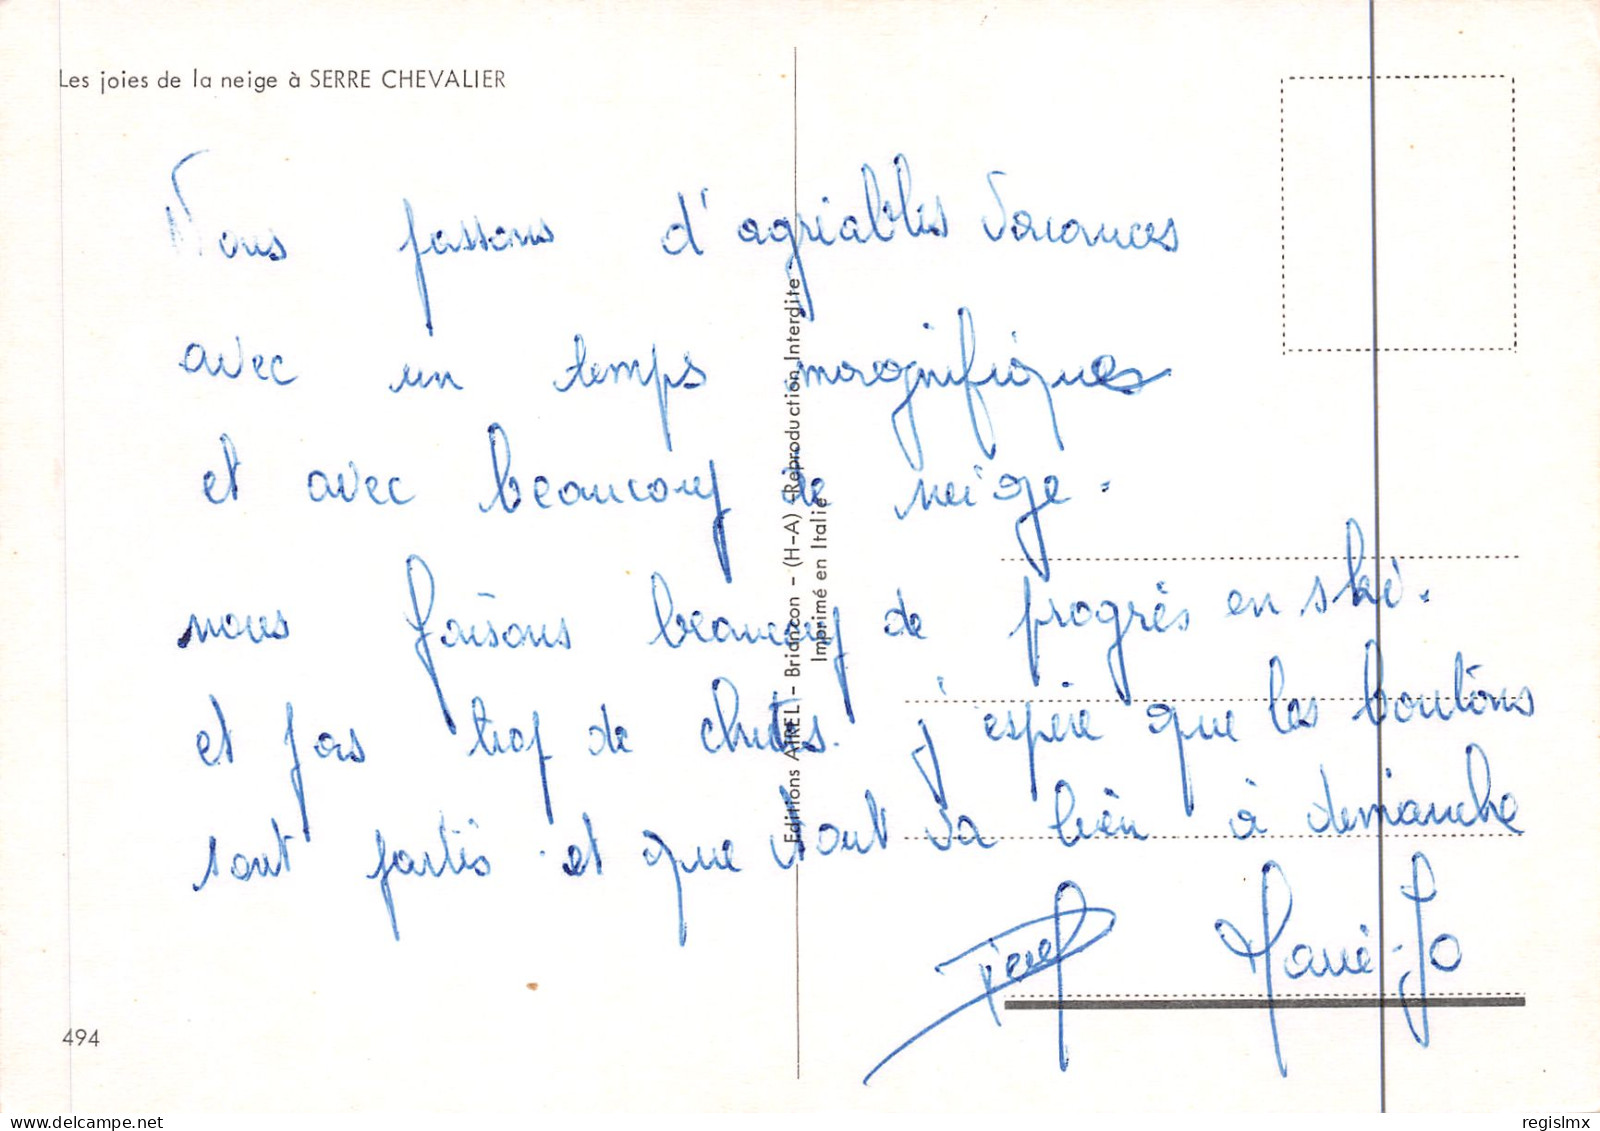 Les joies de la neige à SERRE CHEVALIER
Nous passons d'agréables vacances
avec un temps magnifiques
et avec beaucoup de neige.
nous faisons beaucoup de progrès en ski.
et pas trop de chutes. j'espère que les boutons
sont partis et que tout va bien à dimanche
Marie-Jo
Editions AIREL - Briancon - (H-A) - Reproduction Interdite -
Imprimé en Italie
494
regislmx